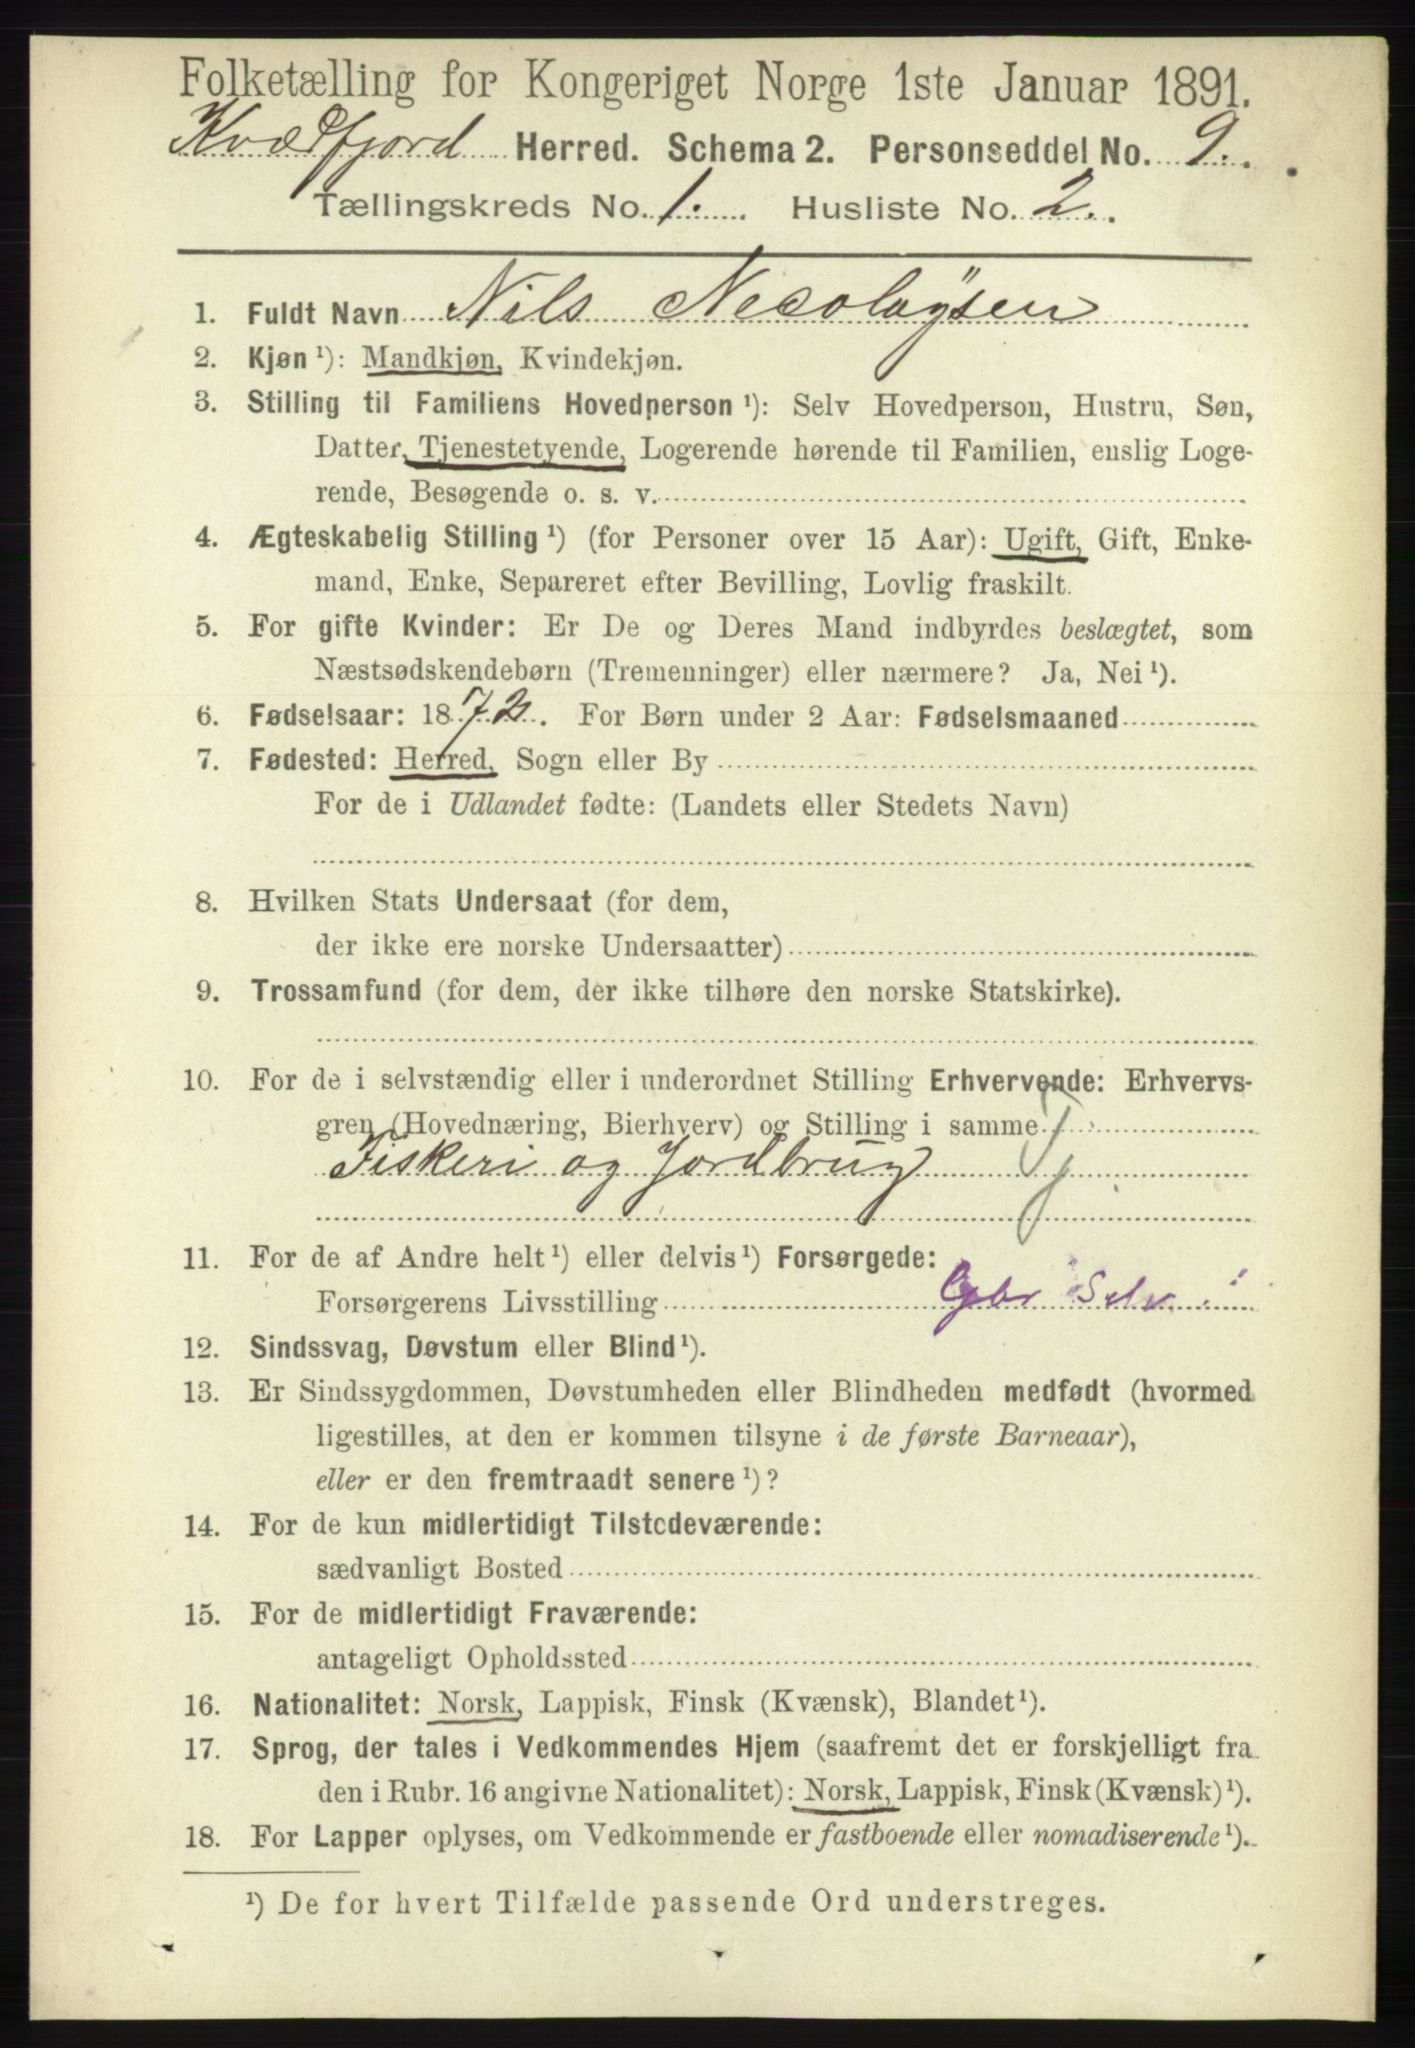 Folketælling for Kongeriget Norge 1ste Januar 1891.
Kvædfjord Herred. Schema 2. Personseddel No. 9.
Tællingskreds No. 1. Husliste No. 2.
1. Fuldt Navn Nils Necolaÿsen
2. Kjøn ¹): Mandkjøn, Kvindekjøn.
3. Stilling til Familiens Hovedperson ¹): Selv Hovedperson, Hustru, Søn,
Datter, Tjenestetyende, Logerende hørende til Familien, enslig Loge-
rende, Besøgende o. s. v.
4. Ægteskabelig Stilling ¹) (for Personer over 15 Aar): Ugift, Gift, Enke-
mand, Enke, Separeret efter Bevilling, Lovlig fraskilt.
5. For gifte Kvinder: Er De og Deres Mand indbyrdes beslægtet, som
Næstsødskendebørn (Tremenninger) eller nærmere? Ja, Nei ¹).
6. Fødselsaar: 1872. For Børn under 2 Aar: Fødselsmaaned
7. Fødested: Herred, Sogn eller By
For de i Udlandet fødte: (Landets eller Stedets Navn)
8. Hvilken Stats Undersaat (for dem,
der ikke ere norske Undersaatter)
9. Trossamfund (for dem, der ikke tilhøre den norske Statskirke).
10. For de i selvstændig eller i underordnet Stilling Erhvervende: Erhvervs-
gren (Hovednæring, Bierhverv) og Stilling i samme Tj
Fiskeri og Jordbrug
11. For de af Andre helt ¹) eller delvis ¹) Forsørgede:
Forsørgerens Livsstilling Gbr Selv
12. Sindssvag, Døvstum eller Blind ¹).
13. Er Sindssygdommen, Døvstumheden eller Blindheden medfødt (hvormed
ligestilles, at den er kommen tilsyne i de første Barneaar),
eller er den fremtraadt senere ¹)?
14. For de kun midlertidigt Tilstedeværende:
sædvanligt Bosted
15. For de midlertidigt Fraværende:
antageligt Opholdssted
16. Nationalitet: Norsk, Lappisk, Finsk (Kvænsk), Blandet ¹).
17. Sprog, der tales i Vedkommendes Hjem (saafremt det er forskjelligt fra
den i Rubr. 16 angivne Nationalitet): Norsk, Lappisk, Finsk (Kvænsk) ¹).
18. For Lapper oplyses, om Vedkommende er fastboende eller nomadiserende ¹).
¹) De for hvert Tilfælde passende Ord understreges.